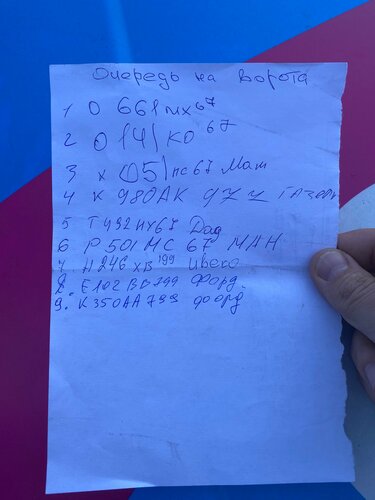 Очередь на ворота
1 О 661 мх 67
2 О 141 КО 67
3 х 051 нс 67 Маз
4 К 980АК 97 Газель
5 Т492НУ67 Даф
6 Р 501 МС 67 МАН
7. Н246хВ 199 Ивеко
8. Е102ВВ799 Форд.
9. К350АА799 форд